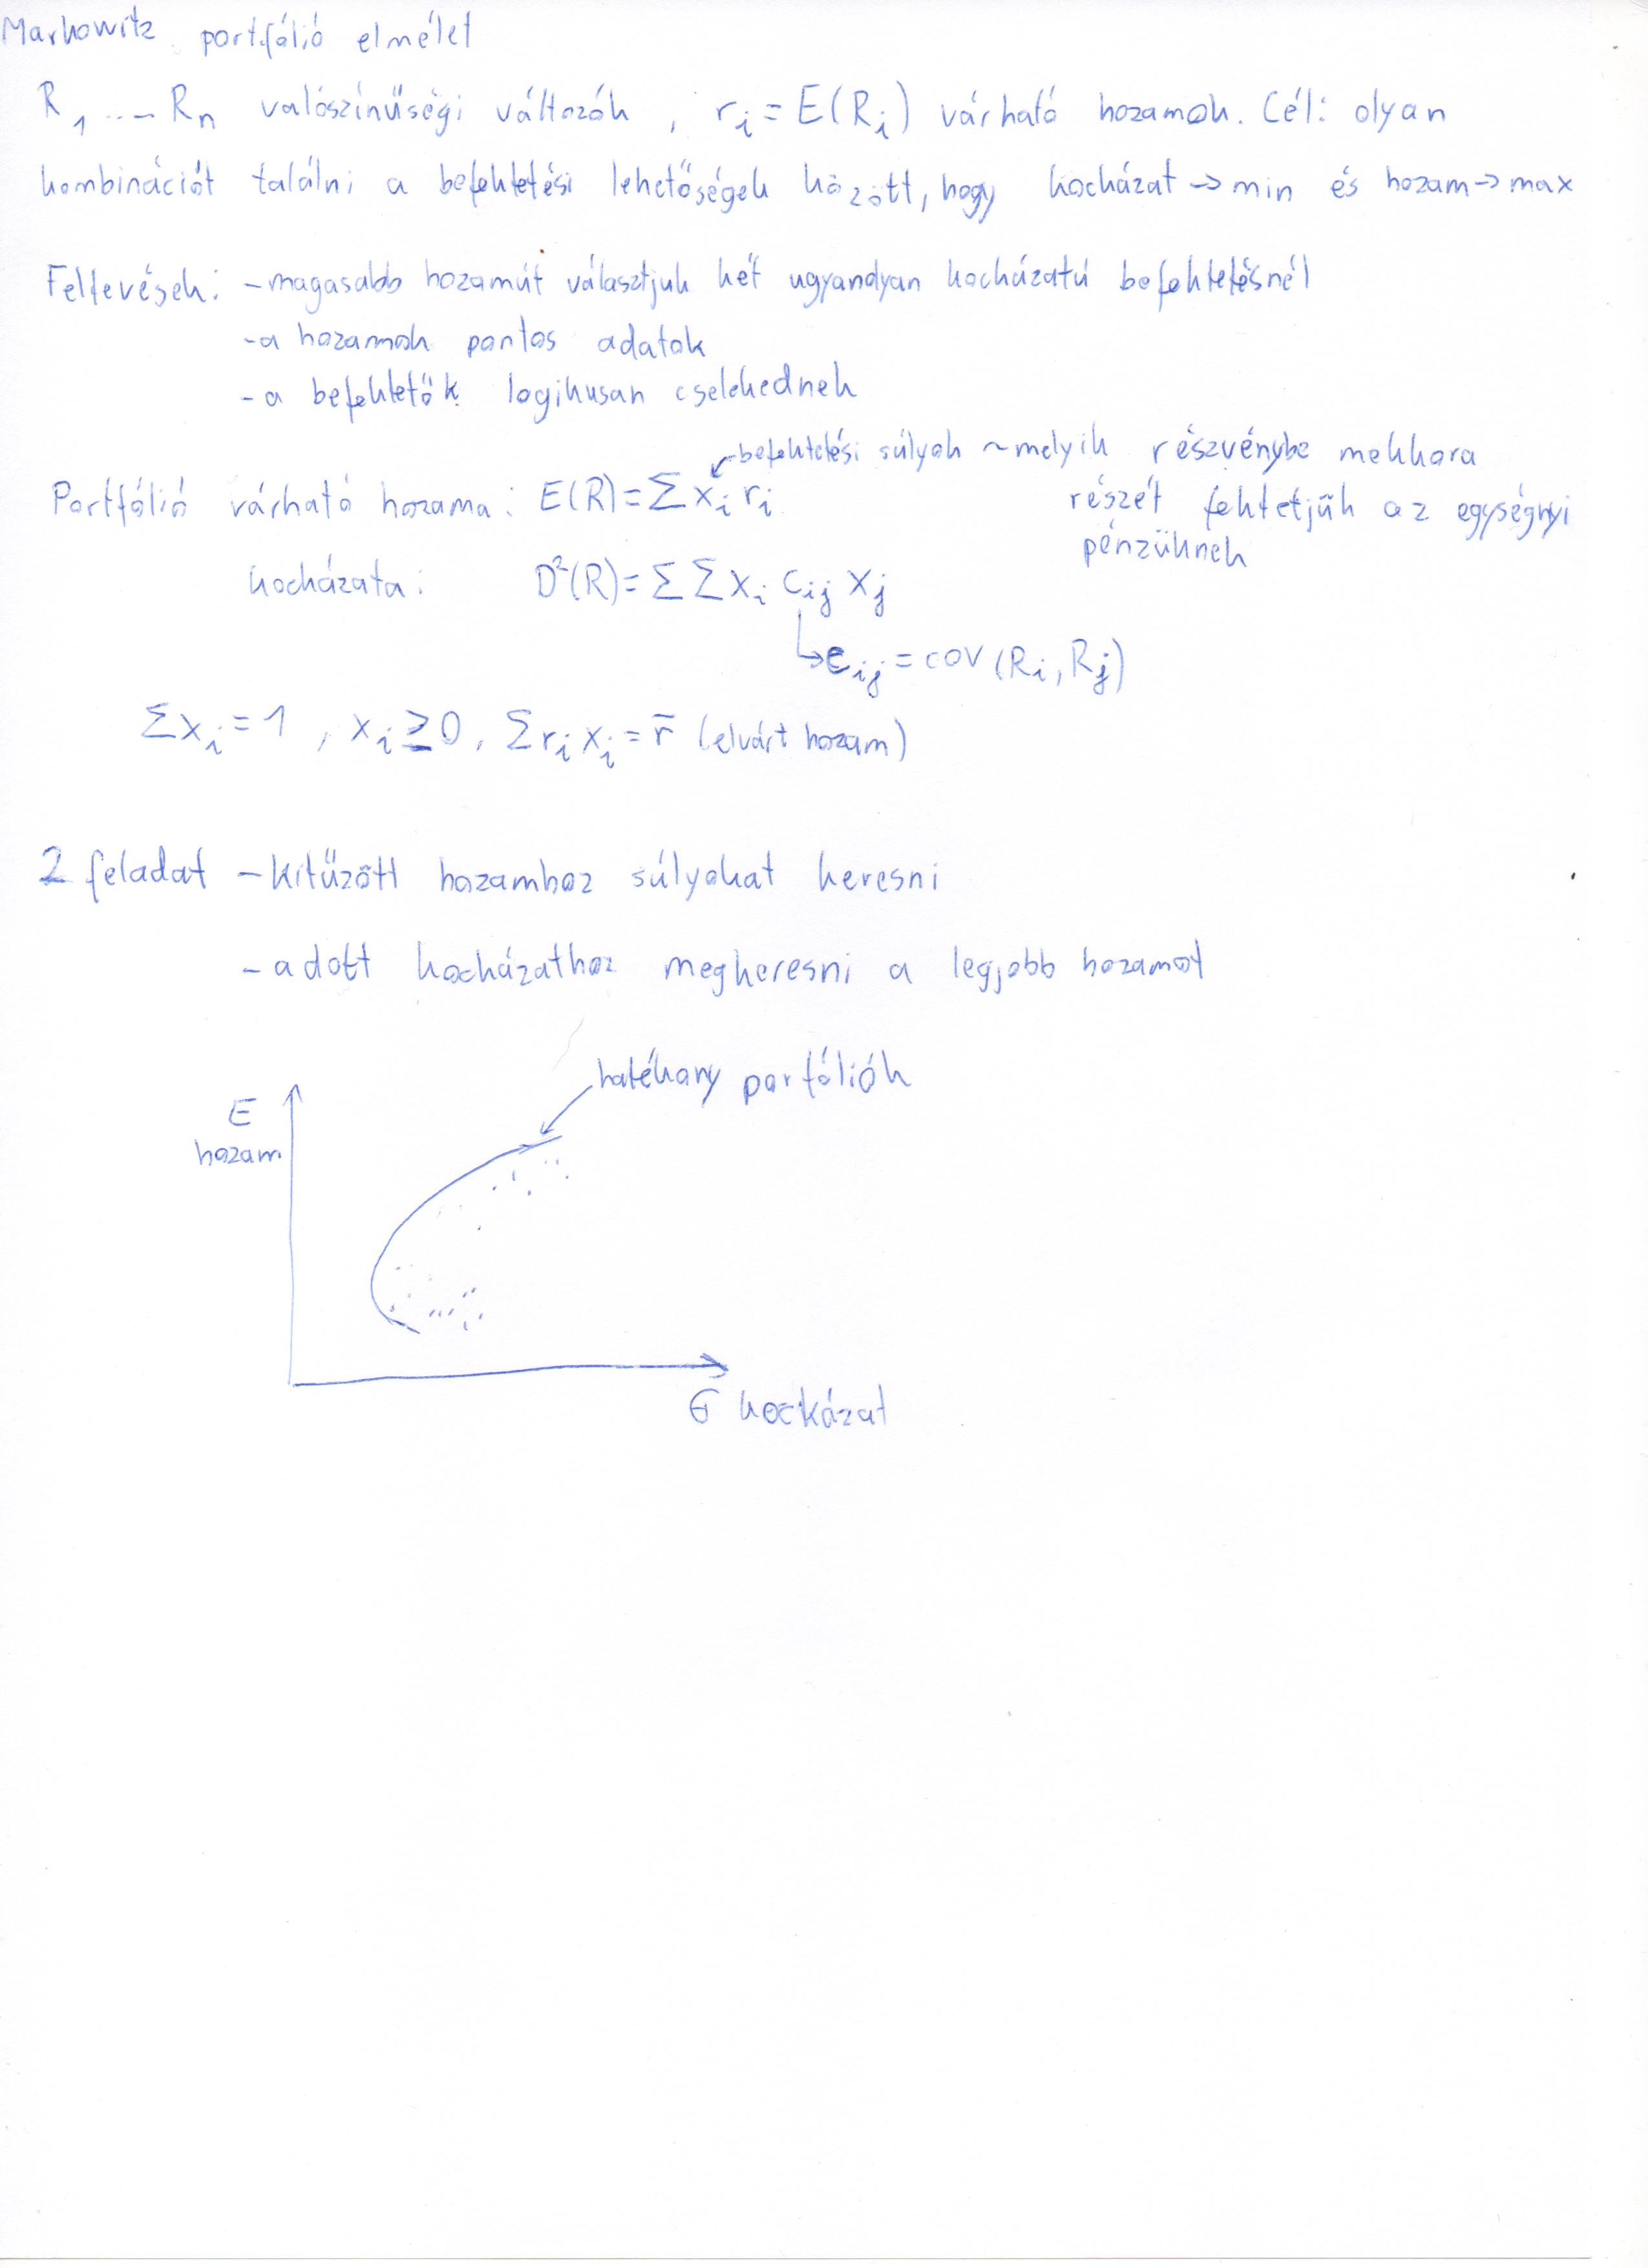 Markowitz portfólió elmélet
R₁ ... Rₙ valószínűségi változók, rᵢ = E(Rᵢ) várható hozamok. Cél: olyan
kombinációt találni a befektetési lehetőségek között, hogy kockázat → min és hozam → max
Feltevések: - magasabb hozamút választjuk két ugyanolyan kockázatú befektetésnél
- a hozamok pontos adatok
- a befektetők logikusan cselekednek
befektetési súlyok ~ melyik részvénybe mekkora
Portfólió várható hozama: E(R) = Σ xᵢ rᵢ részét fektetjük az egységnyi
pénzüknek
kockázata: D²(R) = Σ Σ xᵢ cᵢⱼ xⱼ
↳ cᵢⱼ = cov (Rᵢ, Rⱼ)
Σxᵢ = 1, xᵢ ≥ 0, Σ rᵢ xᵢ = r̄ (elvárt hozam)
2 feladat - kitűzött hozamhoz súlyokat keresni
- adott kockázathoz megkeresni a legjobb hozamot
hatékony porfóliók
E
hozam
σ kockázat